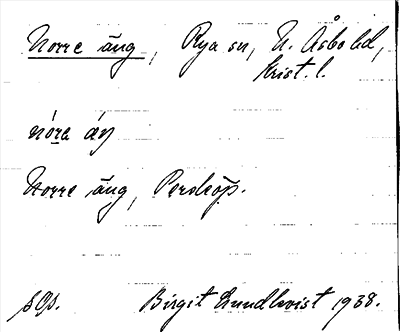 Norre äng, Rya sn, N. Åsbo hd,
Krist. l.
Norre äng, Perstorp.
sgs. Birgit Lundkvist 1938.